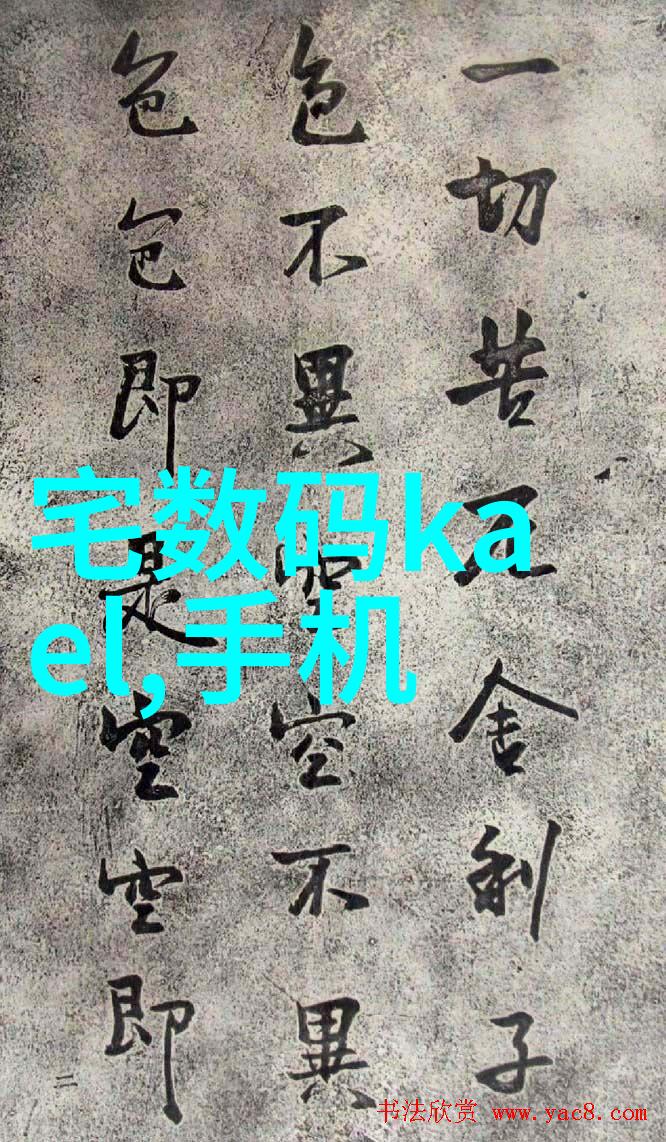 一切苦厄舍利子
色不異空空不異
色色即是空空即
二
宅数码ka
el,手机
书法欣赏 www.yac8.com